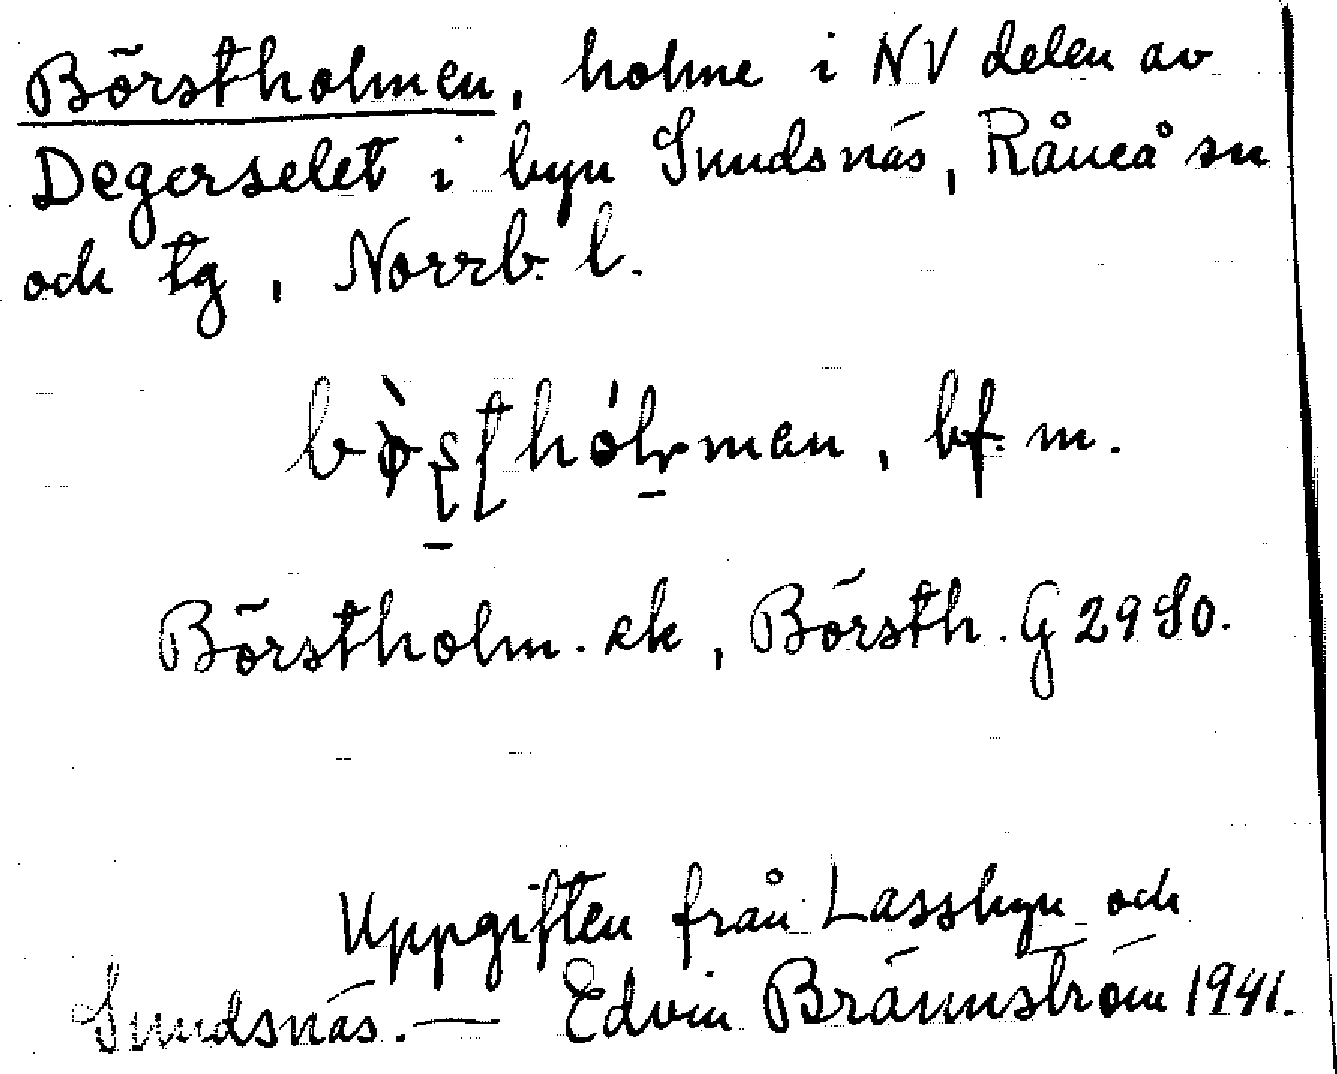 Börstholmen, holme i NV delen av
Degerselet i byn Sundsnäs, Råneå sn
och tg, Norrb. l.
bf. m.
Börstholm. ek, Börsth. G 29 SO.
Uppgiften från Lassbyn och
Sundsnäs. — Edvin Brännström 1941.